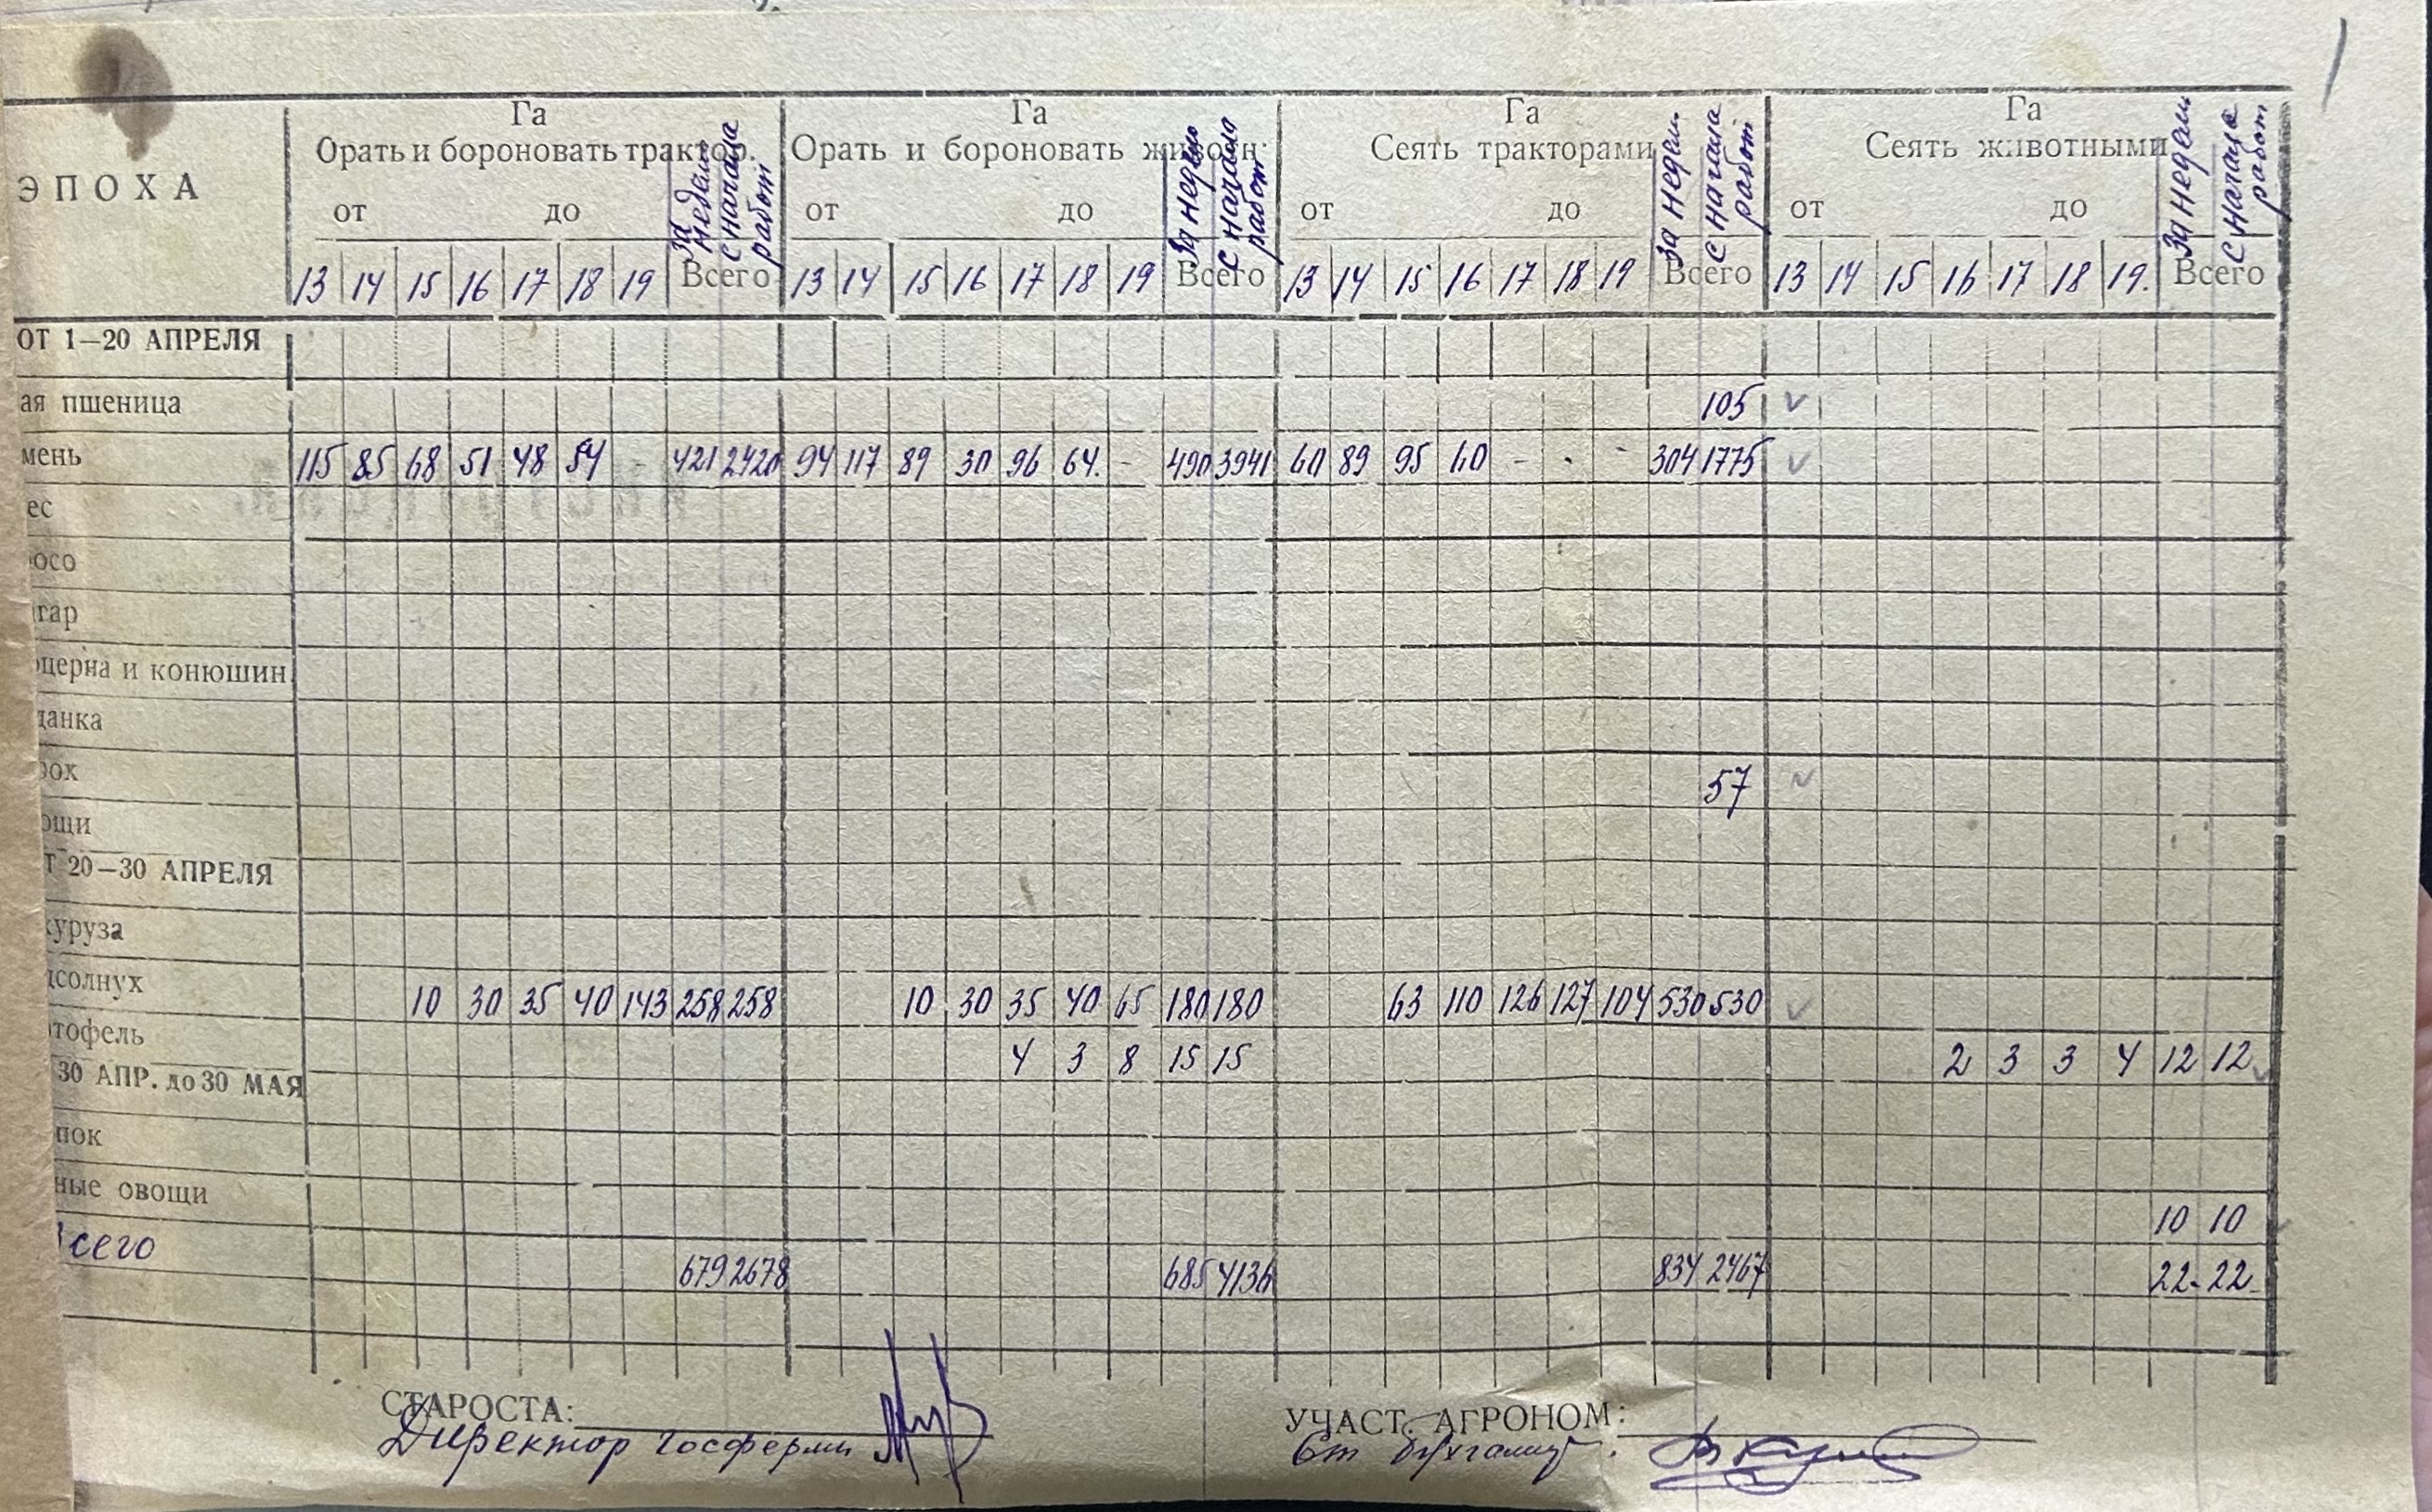 Га Га Га Га
Орать и бороновать трактор. Орать и бороновать животн. Сеять тракторами Сеять животными
ЭПОХА
от до от до от до от до
за неделю с начала работ за неделю с начала работ за недел. с начала работ за недел с начала работ
13 14 15 16 17 18 19 Всего 13 14 15 16 17 18 19 Всего 13 14 15 16 17 18 19 Всего 13 14 15 16 17 18 19. Всего
ОТ 1—20 АПРЕЛЯ
ая пшеница 105
мень 115 85 68 51 48 54 - 421 2420 94 117 89 30 96 64. - 490 3941 60 89 95 60 - - - 304 1775
ес
осо
гар
церна и конюшин.
данка
рох 57
ощи
Т 20—30 АПРЕЛЯ
куруза
дсолнух 10 30 35 40 143 258 258 10 30 35 40 65 180 180 63 110 126 127 104 530 530
тофель 4 3 8 15 15 2 3 3 4 12 12
30 АПР. до 30 МАЯ
пок
ные овощи 10 10
Всего 679 2678 685 4136 834 2467 22- 22
СТАРОСТА: УЧАСТ. АГРОНОМ:
Директор госфермы Ст бухгалтер.